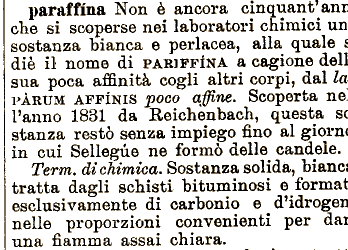 paraffína Non è ancora cinquant'ann
che si scoperse nei laboratori chimici un
sostanza bianca e perlacea, alla quale s
diè il nome di PARIFFÍNA a cagione dell
sua poca affinità cogli altri corpi, dal la
PÀRUM AFFÍNIS poco affine. Scoperta ne
l'anno 1831 da Reichenbach, questa so
stanza restò senza impiego fino al giorno
in cui Sellegúe ne formò delle candele.
Term. di chimica. Sostanza solida, bianca
tratta dagli schisti bituminosi e format
esclusivamente di carbonio e d'idrogen
nelle proporzioni convenienti per dar
una fiamma assai chiara.